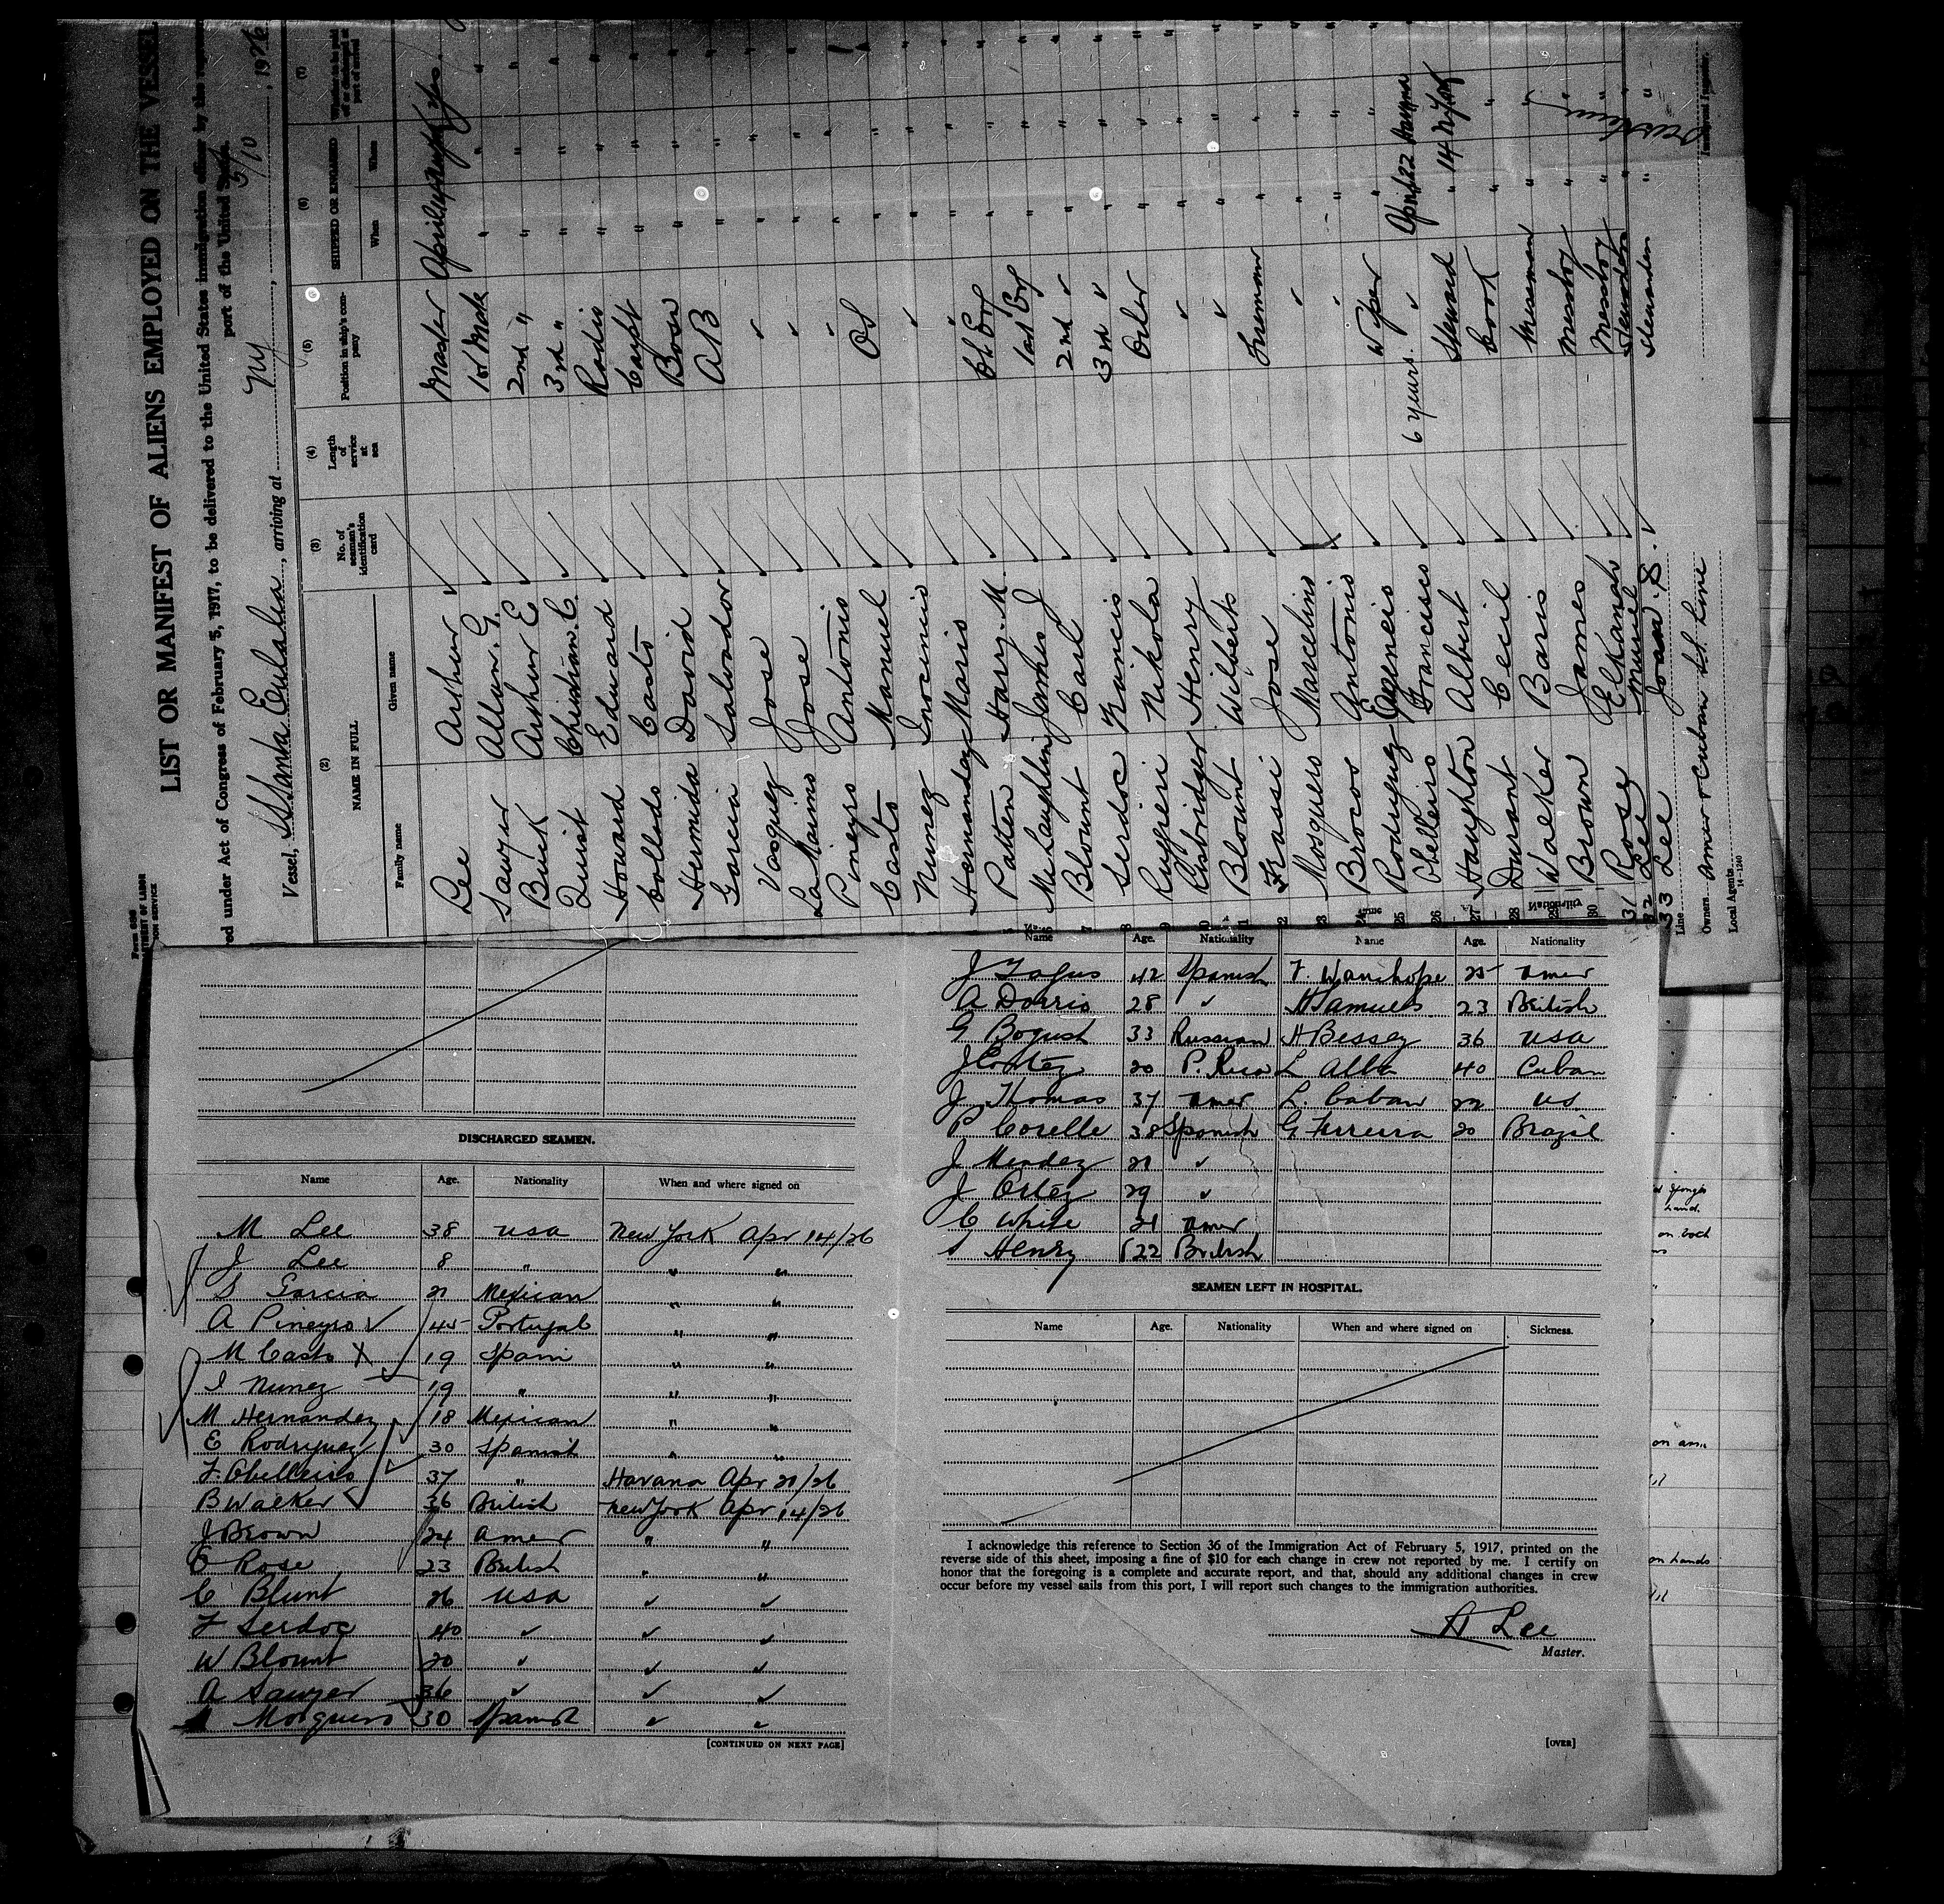 LIST OR MANIFEST OF ALIENS EMPLOYED ON THE VESSEL
red under Act of Congress of February 5, 1917, to be delivered to the United States immigration officer by the
port of the United States.
Vessel, SS Santa Eulalia, arriving at NY, 5/10, 1926
(2) (3) (4) (5) (6) (7)
NAME IN FULL
Family name Given name
No. of seaman's identification card
Length of service at sea
Position in ship's company
SHIPPED OR ENGAGED
When Where
Lee Arthur Master
Sawyer Allan. G. 1st Mate
Buick Arthur E 2nd "
Quist Christian. C. 3rd "
Howard Edward Radio
Collado Casto Carpt
Hermida David Bosn
Garcia Salvador AB
Vasquez Jose
La Maimo Jose
Pineyro Antonio
Casto Manuel OS
Nunez Inocinio
Hernandez Mario
Patten Harry. M. Ch Eng
McLaughlin James J 1st Eng
Blount Carl 2nd
Serdoc Francis 3rd
Rugieri Nikola Oiler
Risbridger Henry
Blount Wilberts
Frassi Jose Fireman
Mosquero Marcelino
Brocos Antonio
Rodriguez Eugeneio Wiper
Obelleiro Francisco 6 years. April 22 Havana
Haughton Albert Steward " 14 N York
Durant Cecil Cook
Walker Baris Messman
Brown James Messboy
31 Rose Elkanah Messboy
32 Lee Muriel Stewardess
33 Lee Joan. 8. Stewardess
Line
Owners Amer & Cuban SS Line
Local Agents
14-1240
Immigrant Inspector.
DISCHARGED SEAMEN.
Name Age. Nationality When and where signed on
M Lee 38 USA New York Apr 14/26
J Lee 8 " " "
S Garcia 21 Mexican " "
A Pineyro 45 Portugal " "
M Casto X 19 Spain " "
I Nunez 19 " " "
M Hernandez 18 Mexican " "
E Rodriguez 30 Spanish " "
F. Obelleiro 37 " Havana Apr 21/26
B Walker 36 British New York Apr 14/26
J Brown 24 Amer " "
E Rose 23 British " "
C Blunt 26 USA
F Serdoc 40
W Blount 20
A Sawyer 36
M Mosquero 30 Spanish
[CONTINUED ON NEXT PAGE]
Name Age. Nationality Name Age. Nationality
J Tafus 42 Spanish F. Wanchope 25 Amer
A Dorris 28 H Samuels 23 British
G Bogush 33 Russian H Bessey 36 USA
J Cortez 20 P. Rico L Alba 40 Cuban
J Thomas 37 Amer L. Caban 22 US
P Corelle 38 Spanish G Ferreira 20 Brazil
J Mendez 21
J Ortez 29
C White 21 Amer
S Henry 22 British
SEAMEN LEFT IN HOSPITAL.
Name Age. Nationality When and where signed on Sickness.
I acknowledge this reference to Section 36 of the Immigration Act of February 5, 1917, printed on the
reverse side of this sheet, imposing a fine of $10 for each change in crew not reported by me. I certify on
honor that the foregoing is a complete and accurate report, and that, should any additional changes in crew
occur before my vessel sails from this port, I will report such changes to the immigration authorities.
A Lee
Master.
[OVER]